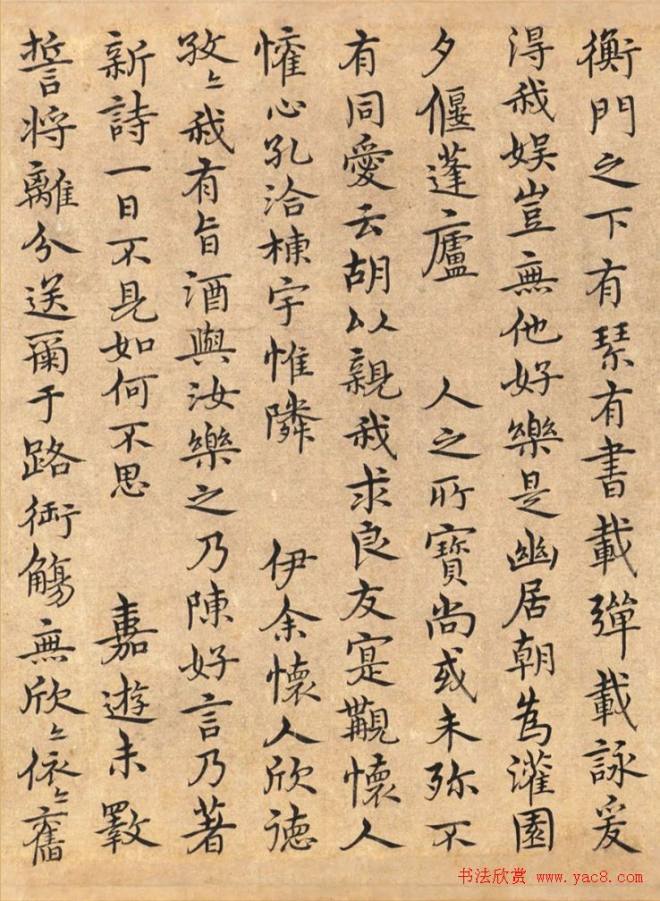 衡門之下有琴有書載彈載詠爰
得我娛豈無他好樂是幽居朝為灌園
夕偃蓬廬　人之所寶尚或未弥不
有同愛云胡以親我求良友寔覯懷人
懽心孔洽棟宇惟隣　伊余懷人欣徳
孜〻我有旨酒與汝樂之乃陳好言乃著
新詩一日不見如何不思　嘉遊未斁
誓将離分送爾于路銜觴無欣〻依〻舊
书法欣赏 www.yac8.com